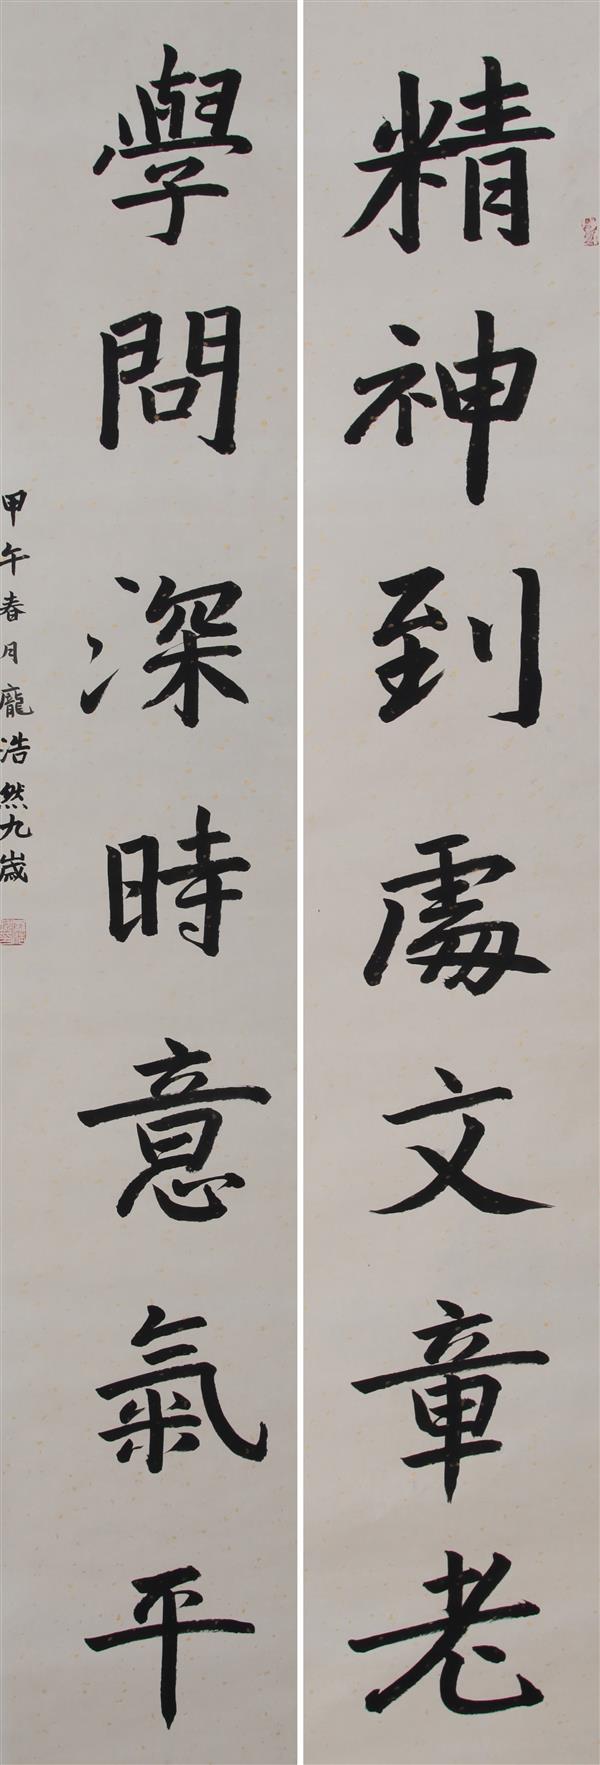 精神到處文章老
學問深時意氣平
甲午春月龐浩然九歲